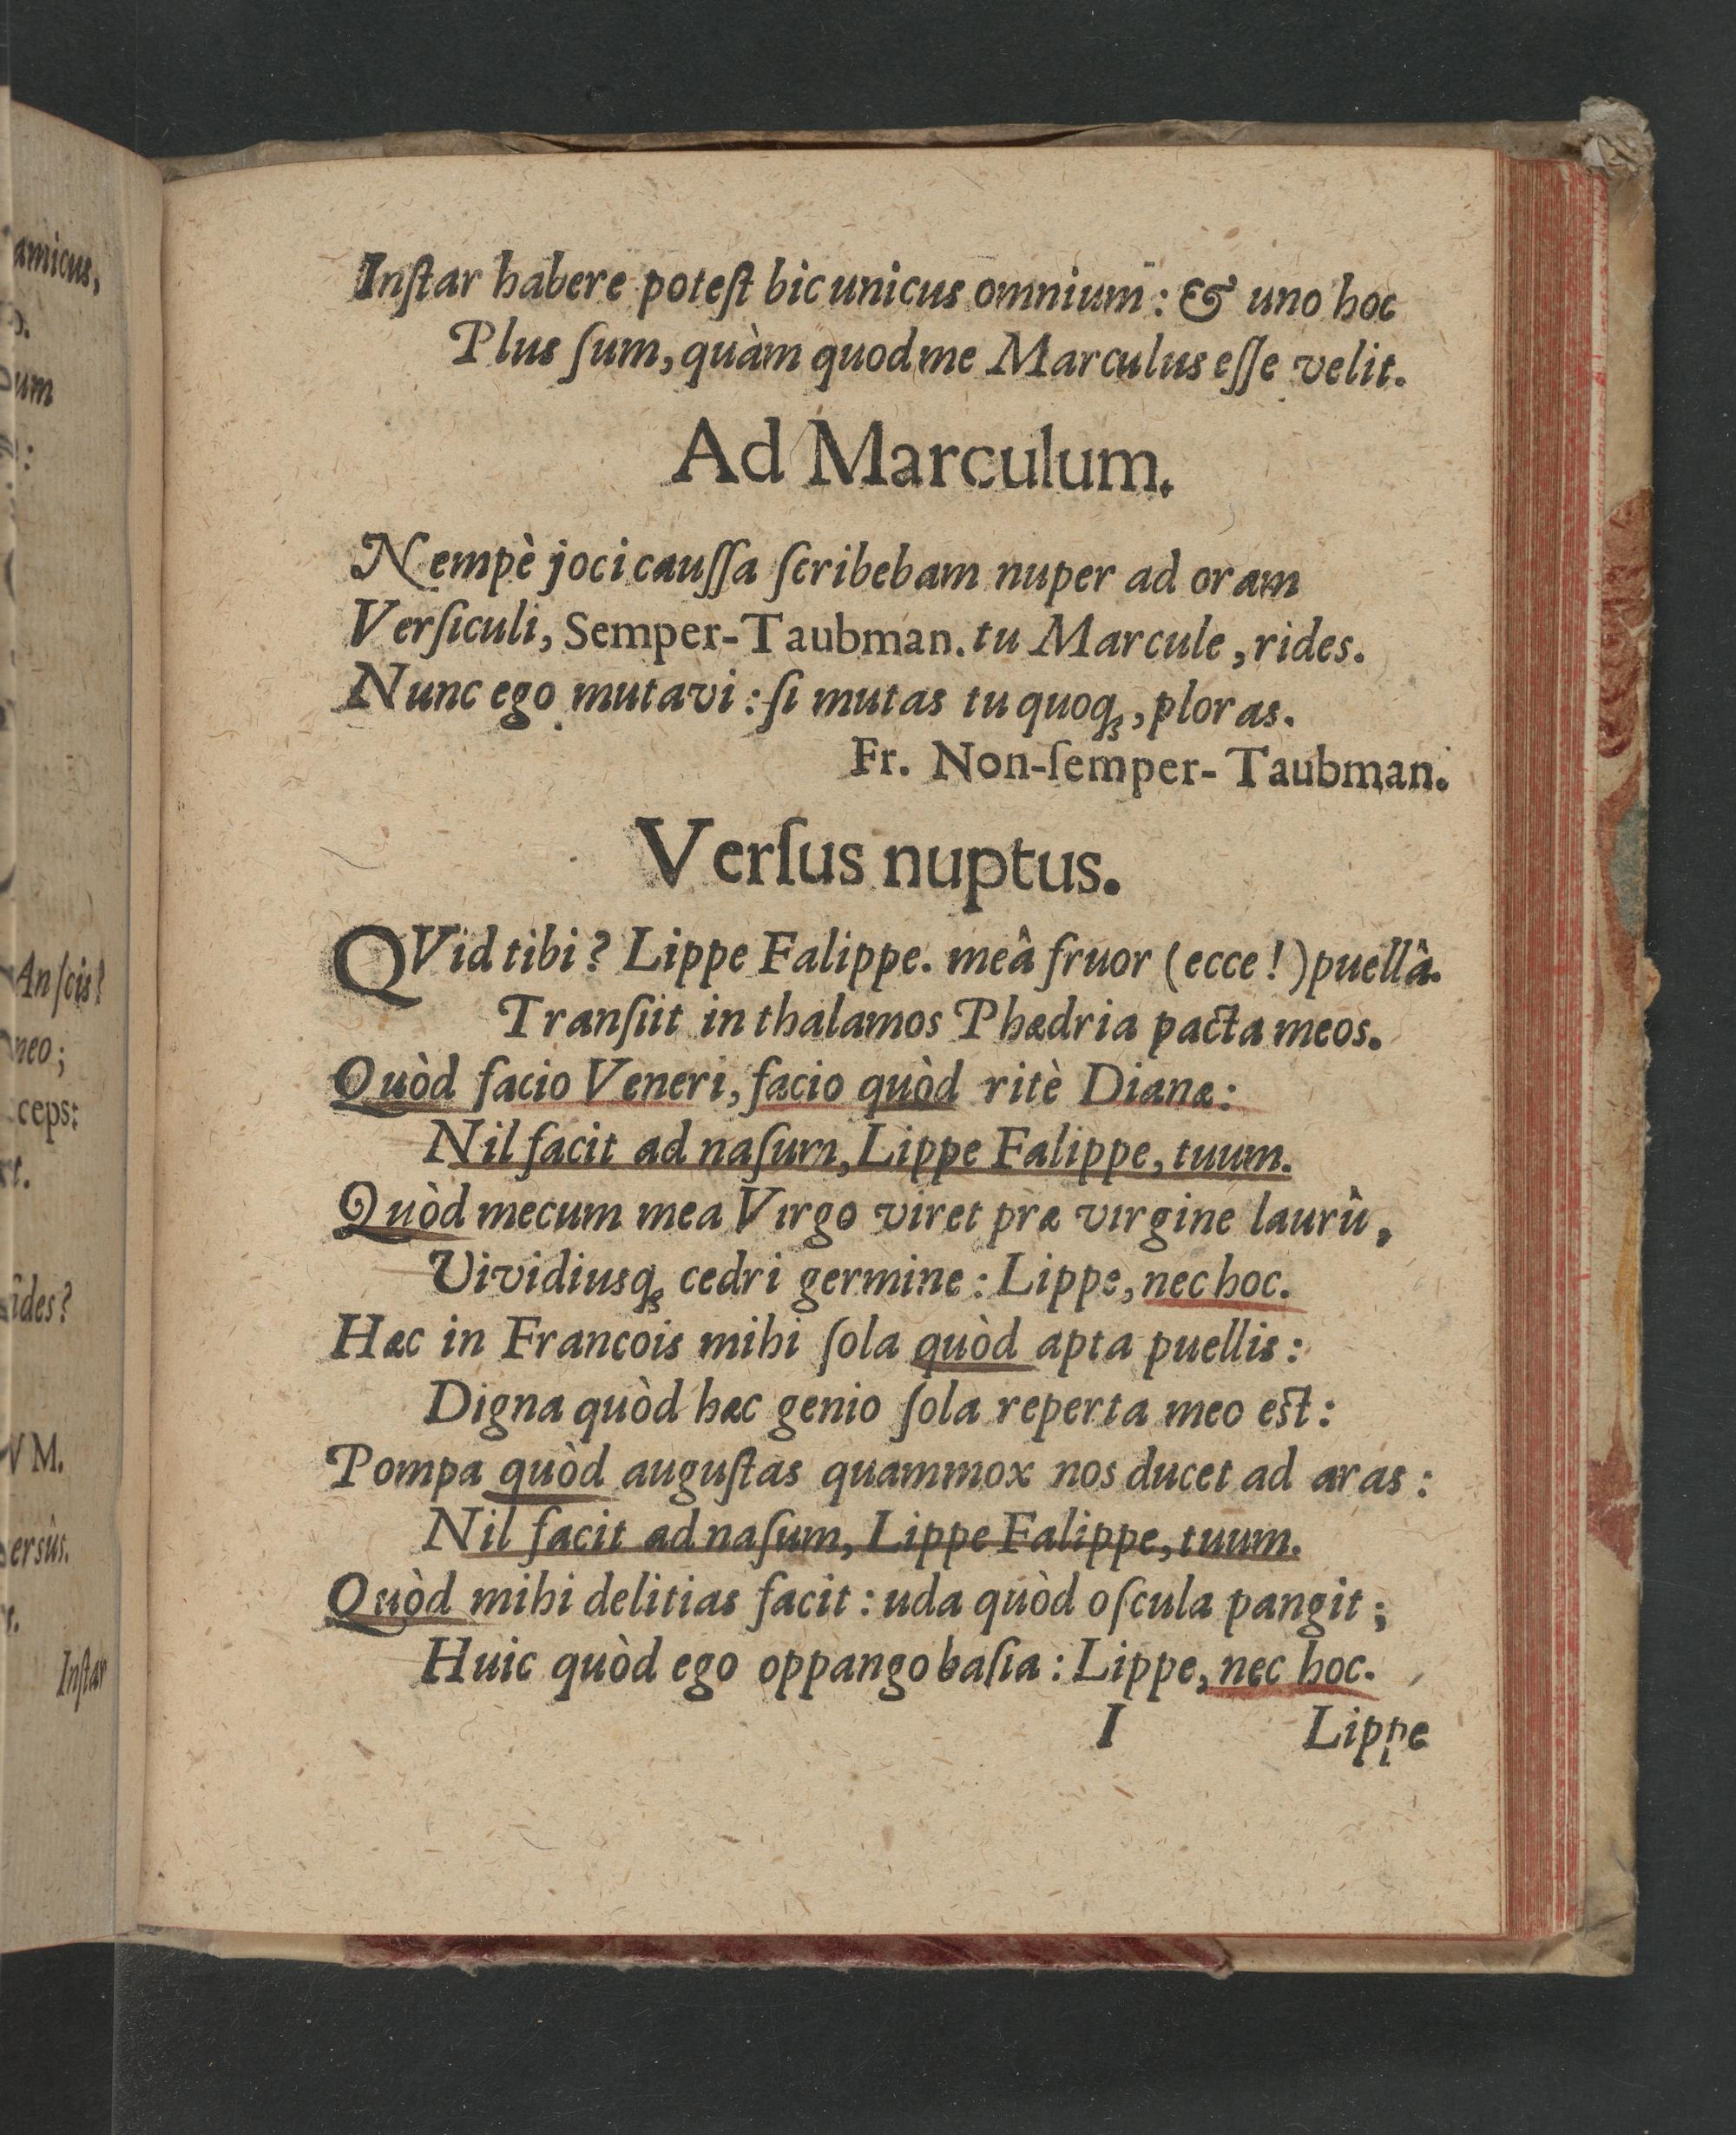 amicus,
o.
um
An ſcis?
neo;
ceps:
t.
ides?
VM.
ersûs.
r.
Inſtar
Inſtar habere poteſt hic unicus omnium: & uno hoc
Plus ſum, quàm quod me Marculus eſſe velit.
Ad Marculum.
Nempè joci cauſſa ſcribebam nuper ad oram
Verſiculi, Semper-Taubman. tu Marcule, rides.
Nunc ego mutavi: ſi mutas tu quoqꝫ, ploras.
Fr. Non-ſemper-Taubman.
Verſus nuptus.
QVid tibi? Lippe Falippe. meâ fruor (ecce!) puellâ.
Tranſiit in thalamos Phædria pacta meos.
Quòd facio Veneri, facio quòd ritè Dianæ:
Nil facit ad naſum, Lippe Falippe, tuum.
Quòd mecum mea Virgo viret præ virgine laurû,
Vividiusqꝫ cedri germine: Lippe, nec hoc.
Hæc in Francois mihi ſola quòd apta puellis:
Digna quòd hæc genio ſola reperta meo est:
Pompa quòd auguſtas quammox nos ducet ad aras:
Nil facit ad naſum, Lippe Falippe, tuum.
Quòd mihi delitias facit: uda quòd oſcula pangit;
Huic quòd ego oppango baſia: Lippe, nec hoc.
I Lippe